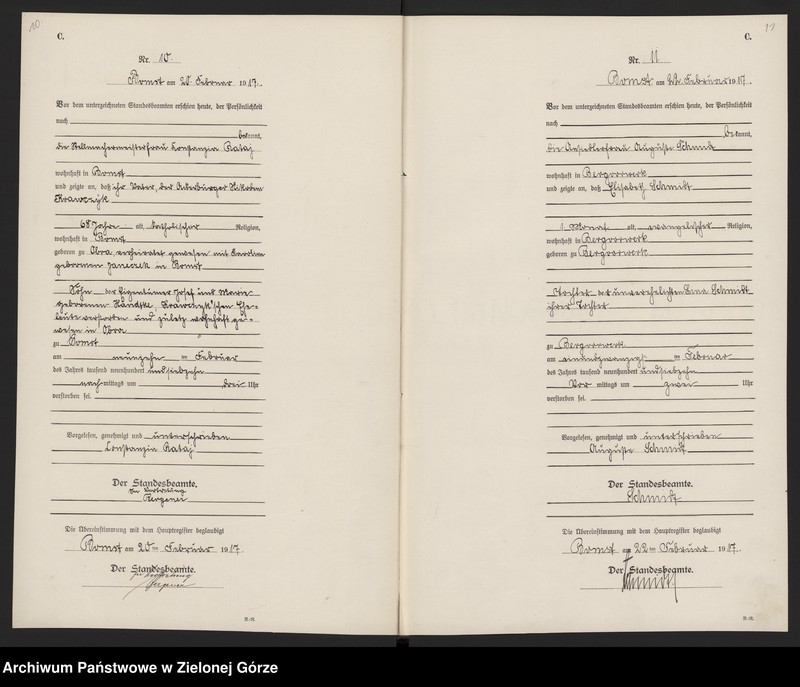 10
C.
Nr. 10.
Bomst am 20. Februar 1917.
Vor dem unterzeichneten Standesbeamten erschien heute, der Persönlichkeit
nach
bekannt,
die Stellmachermeisterfrau Constanzia Rataj
wohnhaft in Bomst
und zeigte an, daß ihr Vater, der Ackerbürger Nikodem
Krawczyk
68 Jahre alt, katholischer Religion,
wohnhaft in Bomst
geboren zu Obra, verheiratet gewesen mit Karoline
geborenen Janeczek in Bomst
Sohn der Eigentümer Josef und Marie
geborenen Krawczyk'schen Ehe-
leute verstorben und zuletzt wohnhaft ge-
wesen in Obra
zu Bomst
am neunzehn ten Februar
des Jahres tausend neunhundert undsiebzehn
nach mittags um drei Uhr
verstorben sei.
Vorgelesen, genehmigt und unterschrieben
Constanzia Rataj
Der Standesbeamte.
In Vertretung
Die Übereinstimmung mit dem Hauptregister beglaubigt
Bomst am 20ten Februar 1917.
Der Standesbeamte.
In Vertretung
R.-R.
11
C.
Nr. 11
Bomst am 22. Februar 1917.
Vor dem unterzeichneten Standesbeamten erschien heute, der Persönlichkeit
nach
bekannt,
die Ansiedlerfrau Auguste Schmidt
wohnhaft in Bergvorwerk
und zeigte an, daß Elisabeth Schmidt
1 Monat alt, evangelischer Religion,
wohnhaft in Bergvorwerk
geboren zu Bergvorwerk
Tochter der unverehelichten Lina Schmidt
ihrer Tochter
zu Bergvorwerk
am einundzwanzigsten Februar
des Jahres tausend neunhundert undsiebzehn
Vor mittags um zwei Uhr
verstorben sei.
Vorgelesen, genehmigt und unterschrieben
Auguste Schmidt
Der Standesbeamte.
Schmidt
Die Übereinstimmung mit dem Hauptregister beglaubigt
Bomst am 22ten Februar 1917.
Der Standesbeamte.
Schmidt
R.-R.
Archiwum Państwowe w Zielonej Górze